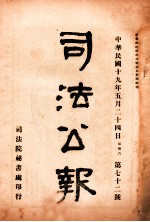 中華民國十九年五月二十四日 第七十二號
司法公報
司法院秘書處印行